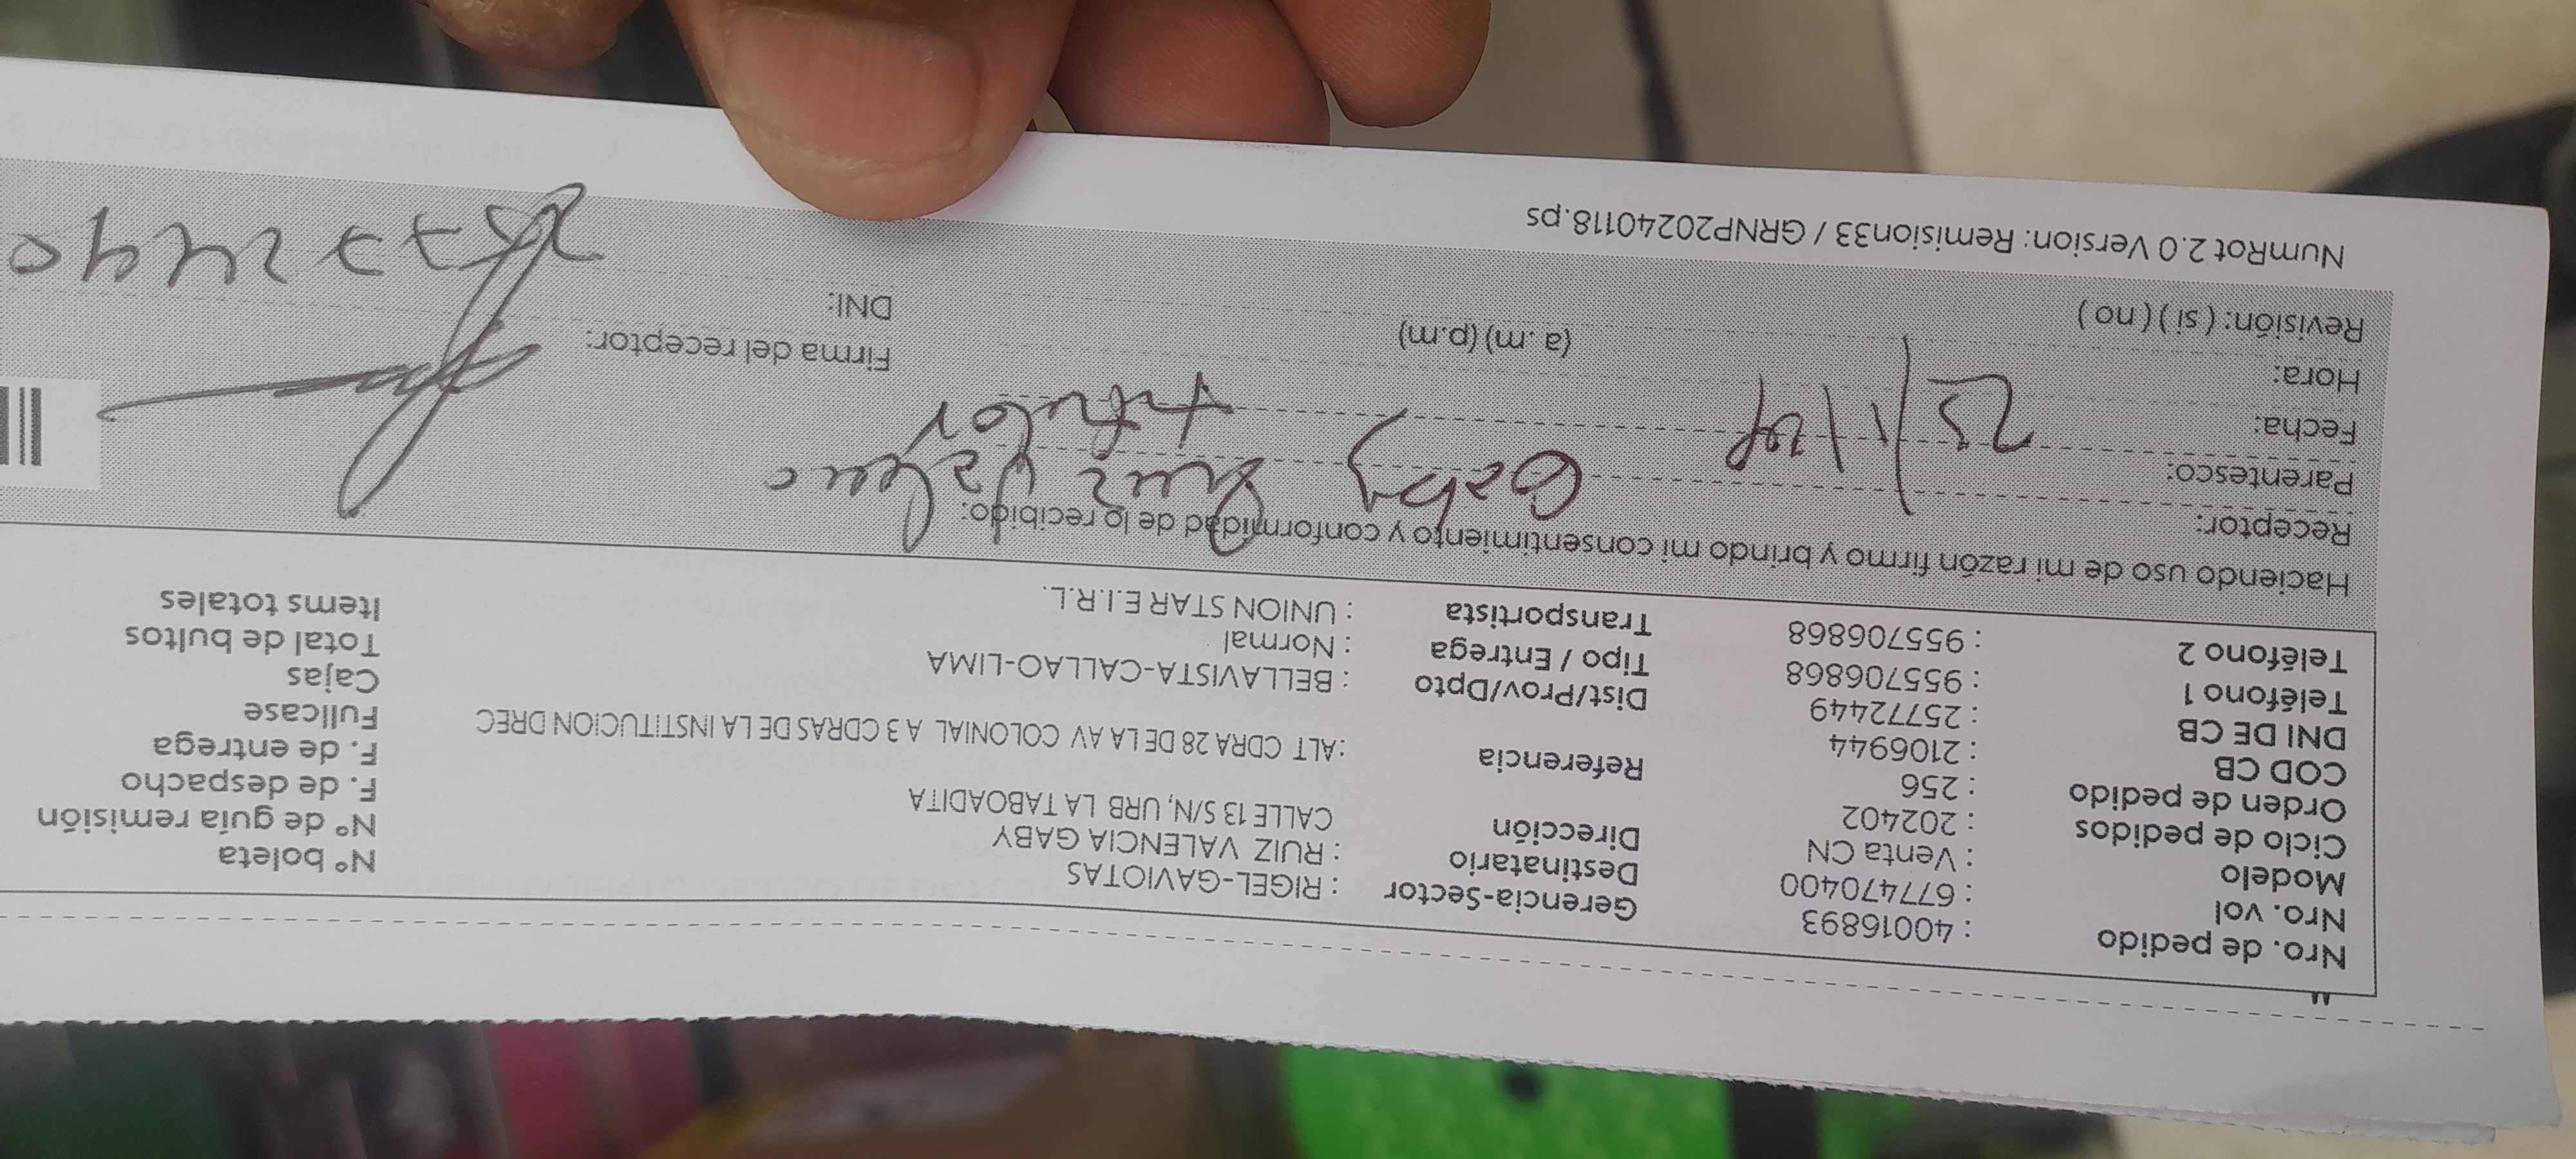 Nro. de pedido : 40016893 Gerencia-Sector : RIGEL-GAVIOTAS Nº boleta
Nro. vol : 677470400 Destinatario : RUIZ VALENCIA GABY Nº de guía remisión
Modelo : Venta CN Dirección CALLE 13 S/N, URB LA TABOADITA F. de despacho
Ciclo de pedidos : 202402 F. de entrega
Orden de pedido : 256 Referencia :ALT CDRA 28 DE LA AV COLONIAL A 3 CDRAS DE LA INSTITUCION DREC Fullcase
COD CB : 2106944 Cajas
DNI DE CB : 25772449 Dist/Prov/Dpto : BELLAVISTA-CALLAO-LIMA Total de bultos
Teléfono 1 : 955706868 Tipo / Entrega : Normal Items totales
Teléfono 2 : 955706868 Transportista : UNION STAR E.I.R.L.
Haciendo uso de mi razón firmo y brindo mi consentimiento y conformidad de lo recibido:
Receptor: Gaby Ruiz
Parentesco: titular
Fecha: 23/1/24
Hora: (a .m) (p.m) Firma del receptor:
Revisión: ( si ) ( no ) DNI:
NumRot 2.0 Version: Remision33 / GRNP20240118.ps